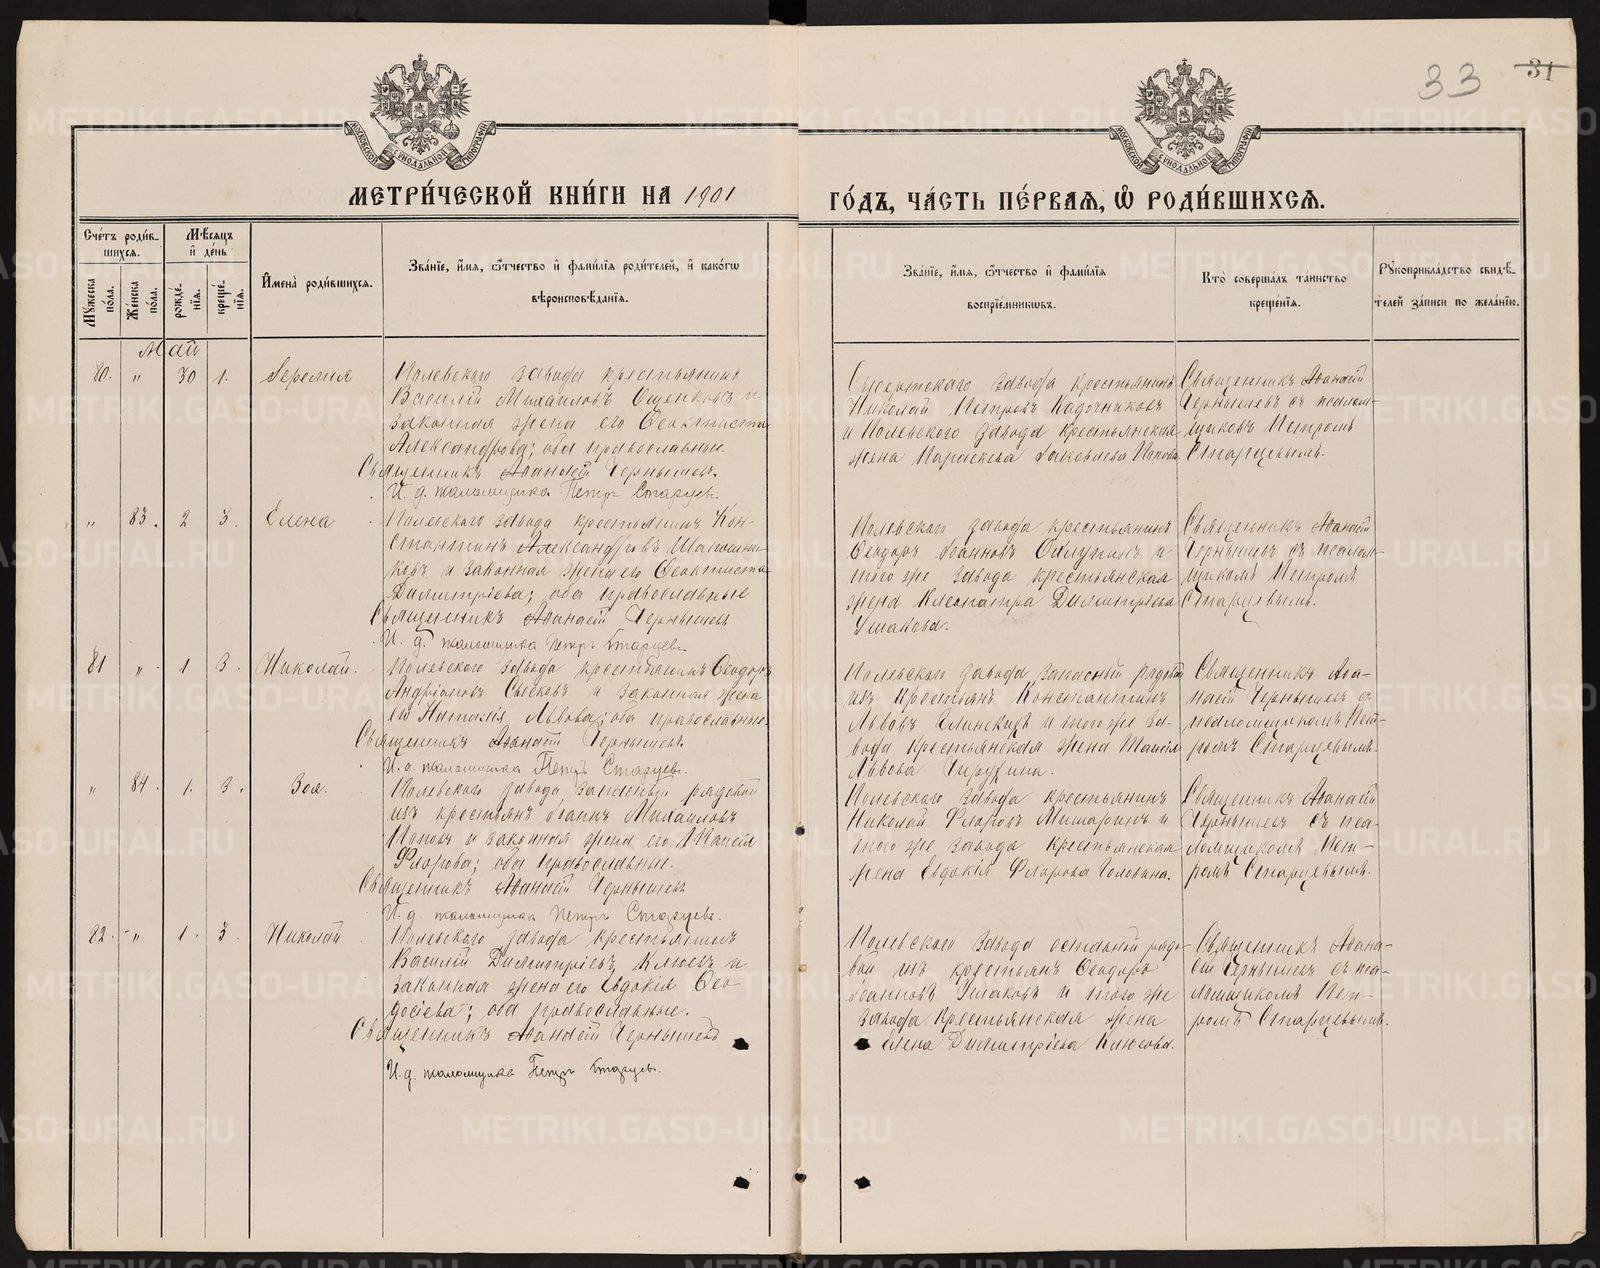 33 31
МОСКОВСКОЙ СѴНОДАЛЬНОЙ ТИПОГРАФІИ
МОСКОВСКОЙ СѴНОДАЛЬНОЙ ТИПОГРАФІИ
МЕТРИ́ЧЕСКОЙ КНИ́ГИ НА 1901
ГО́ДЪ, ЧА́СТЬ ПЕ́РВАѦ, Ѽ РОДИ́ВШИХСѦ.
Сче́тъ роди́в-
шихсѧ.
Мꙋ́жеска по́ла.
Же́нска по́ла.
Мѣ́сѧцъ
и҆ де́нь
рожде́-нїѧ.
креще́-нїѧ.
И҆мена̀ роди́вшихсѧ.
Зва́нїе, и҆́мѧ, ѻ҆́тчество и҆ фами́лїѧ роди́телей, и҆ како́гѡ
вѣроисповѣ́данїѧ.
Зва́нїе, и҆́мѧ, ѻ҆́тчество и҆ фами́лїѧ
воспрїе́мникѡвъ.
Кто̀ соверша́лъ та́инство
креще́нїѧ.
Рꙋкоприкла́дство свидѣ́-
телей за́писи по жела́нїю.
Май
80. " 30 1. Іеремия
Полевскаго завода крестьянинъ
Василій Михайловъ Ощепковъ и
законная жена его Ѳеоктиста
Александрова; оба православные.
Священникъ Аѳанасій Чернышевъ.
И. д. псаломщика Петръ Старцевъ.
Сысертскаго завода крестьянинъ
Николай Петровъ Кадочниковъ
и Полевского завода крестьянская
жена Параскева Іаковлева Попова.
Священникъ Аѳанасій
Чернышевъ съ псалом-
щикомъ Петромъ
Старцевымъ.
" 83. 2 3. Елена
Полевского завода крестьянинъ Кон-
стантинъ Александровъ Шапошни-
ковъ и законная жена его Ѳеоктиста
Димитріева; оба православные
Священникъ Аѳанасій Чернышевъ
И. д. псаломщика Петръ Старцевъ.
Полевского завода крестьянинъ
Ѳеодоръ Іоанновъ Охлупинъ и
того же завода крестьянская
жена Клеопатра Димитріева
Ушакова.
Священникъ Аѳанасій
Чернышевъ съ псалом-
щикомъ Петромъ
Старцевымъ.
81 " 1 3. Николай.
Полевского завода крестьянинъ Ѳеодоръ
Андріановъ Сысковъ и законная жена
его Наталія Львова; оба православные.
Священникъ Аѳанасій Чернышевъ
И. д. псаломщика Петръ Старцевъ.
Полевского завода запасный рядовой
изъ крестьянъ Константинъ
Львовъ Глинскихъ и того же за-
вода крестьянская жена Таисія
Львова Чирухина.
Священникъ Аѳа-
насій Чернышевъ съ
псаломщикомъ Пет-
ромъ Старцевымъ.
" 84. 1. 3. Зоя.
Полевского завода запасный рядовой
изъ крестьянъ Іоаннъ Михайловъ
Поповъ и законная жена его Таисія
Флорова; оба православные.
Священникъ Аѳанасій Чернышевъ
И. д. псаломщика Петръ Старцевъ.
Полевского завода крестьянинъ
Николай Флоровъ Мишаринъ и
того же завода крестьянская
жена Евдокія Флорова Головина.
Священникъ Аѳанасій
Чернышевъ съ пса-
ломщикомъ Пет-
ромъ Старцевымъ.
82. " 1. 3. Николай
Полевского завода крестьянинъ
Василій Димитріевъ Клюевъ и
законная жена его Евдокія Ѳео-
досіева; оба православные.
Священникъ Аѳанасій Чернышевъ
И. д. псаломщика Петръ Старцевъ.
Полевского завода рядо-
вой изъ крестьянъ Ѳеодоръ
Іоанновъ Ушаковъ и того же
завода крестьянская жена
Елена Димитріева Кинсова.
Священникъ Аѳана-
сій Чернышевъ съ пса-
ломщикомъ Пет-
ромъ Старцевымъ.
METRIKI.GASO-URAL.RU